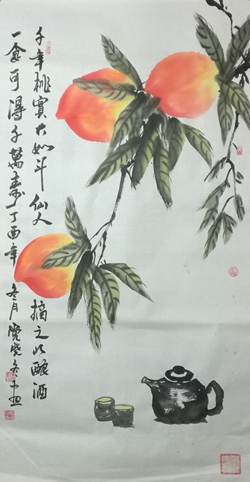 千年桃實大如斗仙人摘之以釀酒
一食可得千萬壽丁酉年冬月